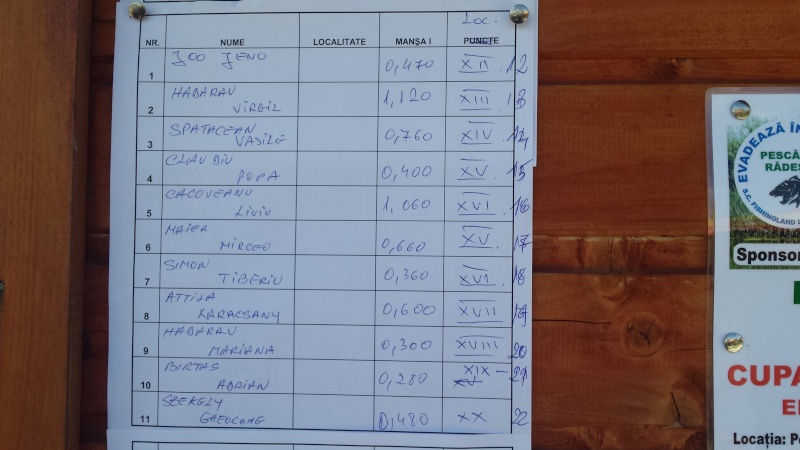 LOC.
NR. NUME LOCALITATE MANȘA I PUNCTE
1 JOO JENO 0,470 XII . 12
2 HABARAU VIRGIL 1,120 XIII . 13
3 SPATACEAN VASILE 0,760 XIV . 14
4 CLAUDIU POPA 0,400 XV . 15
5 CACOVEANU LIVIU 1,060 XVI . 16
6 MAIER MIRCEO 0,660 XV . 17
7 SIMON TIBERIU 0,360 XVI . 18
8 ATTILA KARACSANY 0,600 XVII 19
9 HABARAU MARIANA 0,300 XVIII 20
10 BIRTAS ADRIAN 0,280 XIX – 21
11 SZEKELY GHEORGHE 0,480 XX 22
EVADEAZĂ ÎN
PESCĂ
RĂDES
S.C. FISHINGLAND
Sponsor
CUPA
Locația: